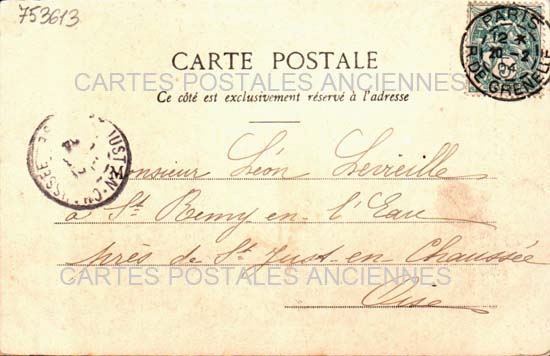 753613
PARIS
12
20-2
04
R. DE GRENELLE
CARTE POSTALE
CARTES POSTALES ANCIENNES
Ce côté est exclusivement réservé à l'adresse
ST JUST-EN-CHAUSSÉE
M
Monsieur Léon Levreille
à St Remy en l'Eau
près de St Just-en Chaussée
CARTES POSTALES ANCIENNES
Oise